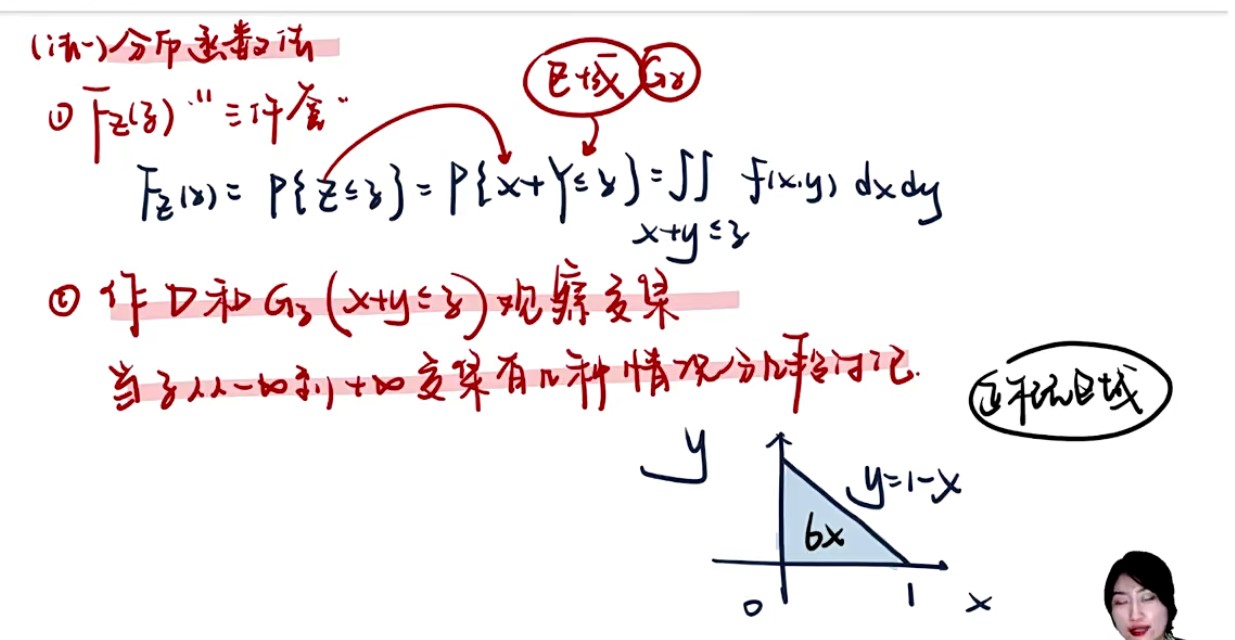 (法一)分布函数法
① F_Z(z) "三件套"
区域 G_z
F_Z(z) = P{Z≤z} = P{X+Y≤z} = ∬ f(x,y) dxdy
x+y≤z
② 作D和G_z(x+y≤z)观察交集
当z从-∞到+∞交集有几种情况分几种讨论.
正概率区域
y
y=1-x
6x
0 1 x